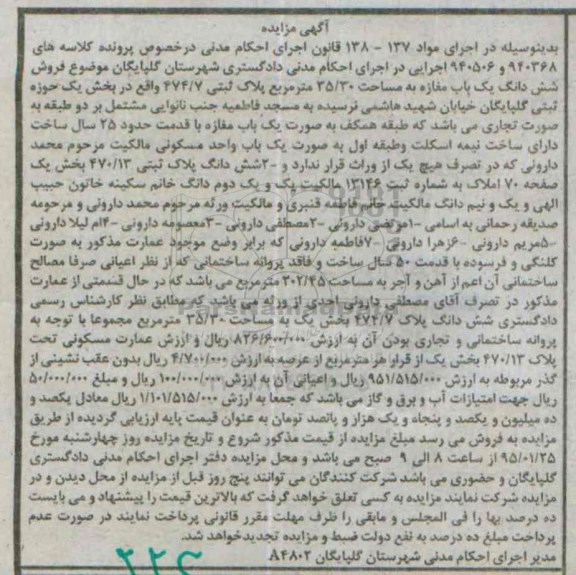 آگهی مزایده
بدینوسیله در اجرای مواد ۱۳۷ - ۱۳۸ قانون اجرای احکام مدنی درخصوص پرونده کلاسه های
۹۴۰۳۶۸ و ۹۴۰۵۰۶ اجرایی در اجرای احکام مدنی دادگستری شهرستان گلپایگان موضوع فروش
شش دانگ یک باب مغازه به مساحت ۳۵/۳۰ مترمربع پلاک ثبتی ۴۷۴/۷ واقع در بخش یک حوزه
ثبتی گلپایگان خیابان شهید هاشمی نرسیده به مسجد فاطمیه جنب نانوایی مشتمل بر دو طبقه به
صورت تجاری می باشد که طبقه همکف به صورت یک باب مغازه با قدمت حدود ۲۵ سال ساخت
دارای ساخت نیمه اسکلت وطبقه اول به صورت یک باب واحد مسکونی مالکیت مرحوم محمد
دارونی که در تصرف هیچ یک از وراث قرار ندارد و -۲شش دانگ پلاک ثبتی ۴۷۰/۱۳ بخش یک
صفحه ۷۰ املاک به شماره ثبت ۱۳۱۴۶ مالکیت یک و یک دوم دانگ خانم سکینه خاتون حبیب
الهی و یک و نیم دانگ مالکیت خانم فاطمه قنبری و مالکیت ورثه مرحوم محمد دارونی و مرحومه
صدیقه رحمانی به اسامی -۱مرتضی دارونی -۲مصطفی دارونی -۳معصومه دارونی -۴ام لیلا دارونی
-۵مریم دارونی -۶زهرا دارونی -۷فاطمه دارونی که برابر وضع موجود عمارت مذکور به صورت
کلنگی و فرسوده با قدمت ۵۰ سال ساخت و فاقد پروانه ساختمانی که از نظر اعیانی صرفا مصالح
ساختمانی آن اعم از آهن و آجر به مساحت ۳۰۲/۴۵ مترمربع می باشد که در حال قسمتی از عمارت
مذکور در تصرف آقای مصطفی دارونی احدی از ورثه می باشد که مطابق نظر کارشناس رسمی
دادگستری شش دانگ پلاک ۴۷۴/۷ بخش یک به مساحت ۳۵/۳۰ مترمربع مجموعا با توجه به
پروانه ساختمانی و تجاری بودن آن به ارزش ۸۲۶/۶۰۰/۰۰۰ ریال و ارزش عمارت مسکونی تحت
پلاک ۴۷۰/۱۳ بخش یک از قرار هر مترمربع از عرصه به ارزش ۴/۷۰۰/۰۰۰ ریال بدون عقب نشینی از
گذر مربوطه به ارزش ۹۵۱/۵۱۵/۰۰۰ ریال و اعیانی آن به ارزش ۱۰۰/۰۰۰/۰۰۰ ریال و مبلغ ۵۰/۰۰۰/۰۰۰
ریال جهت امتیازات آب و برق و گاز می باشد که جمعا به ارزش ۱/۱۰۱/۵۱۵/۰۰۰ ریال معادل یکصد و
ده میلیون و یکصد و پنجاه و یک هزار و پانصد تومان به عنوان قیمت پایه ارزیابی گردیده از طریق
مزایده به فروش می رسد مبلغ مزایده از قیمت مذکور شروع و تاریخ مزایده روز چهارشنبه مورخ
۹۵/۰۱/۲۵ از ساعت ۸ الی ۹ صبح می باشد و محل مزایده دفتر اجرای احکام مدنی دادگستری
گلپایگان و حضوری می باشد شرکت کنندگان می توانند پنج روز قبل از مزایده از محل دیدن و در
مزایده شرکت نمایند مزایده به کسی تعلق خواهد گرفت که بالاترین قیمت را پیشنهاد و می بایست
ده درصد بها را فی المجلس و مابقی را ظرف مهلت مقرر قانونی پرداخت نمایند در صورت عدم
پرداخت مبلغ ده درصد به نفع دولت ضبط و مزایده تجدیدخواهد شد.
مدیر اجرای احکام مدنی شهرستان گلپایگان ۸۴۸۰۲
۲۲۶